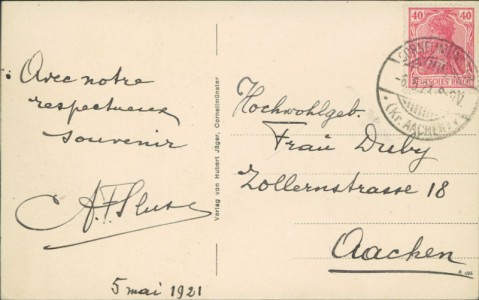 Avec notre
respectueux
souvenir
5 mai 1921
Verlag von Hubert Jäger, Cornelimünster
40 40
DEUTSCHES REICH
(Kr. AACHEN)
Hochwohlgeb.
Frau Duby
Zollernstrasse 18
Aachen